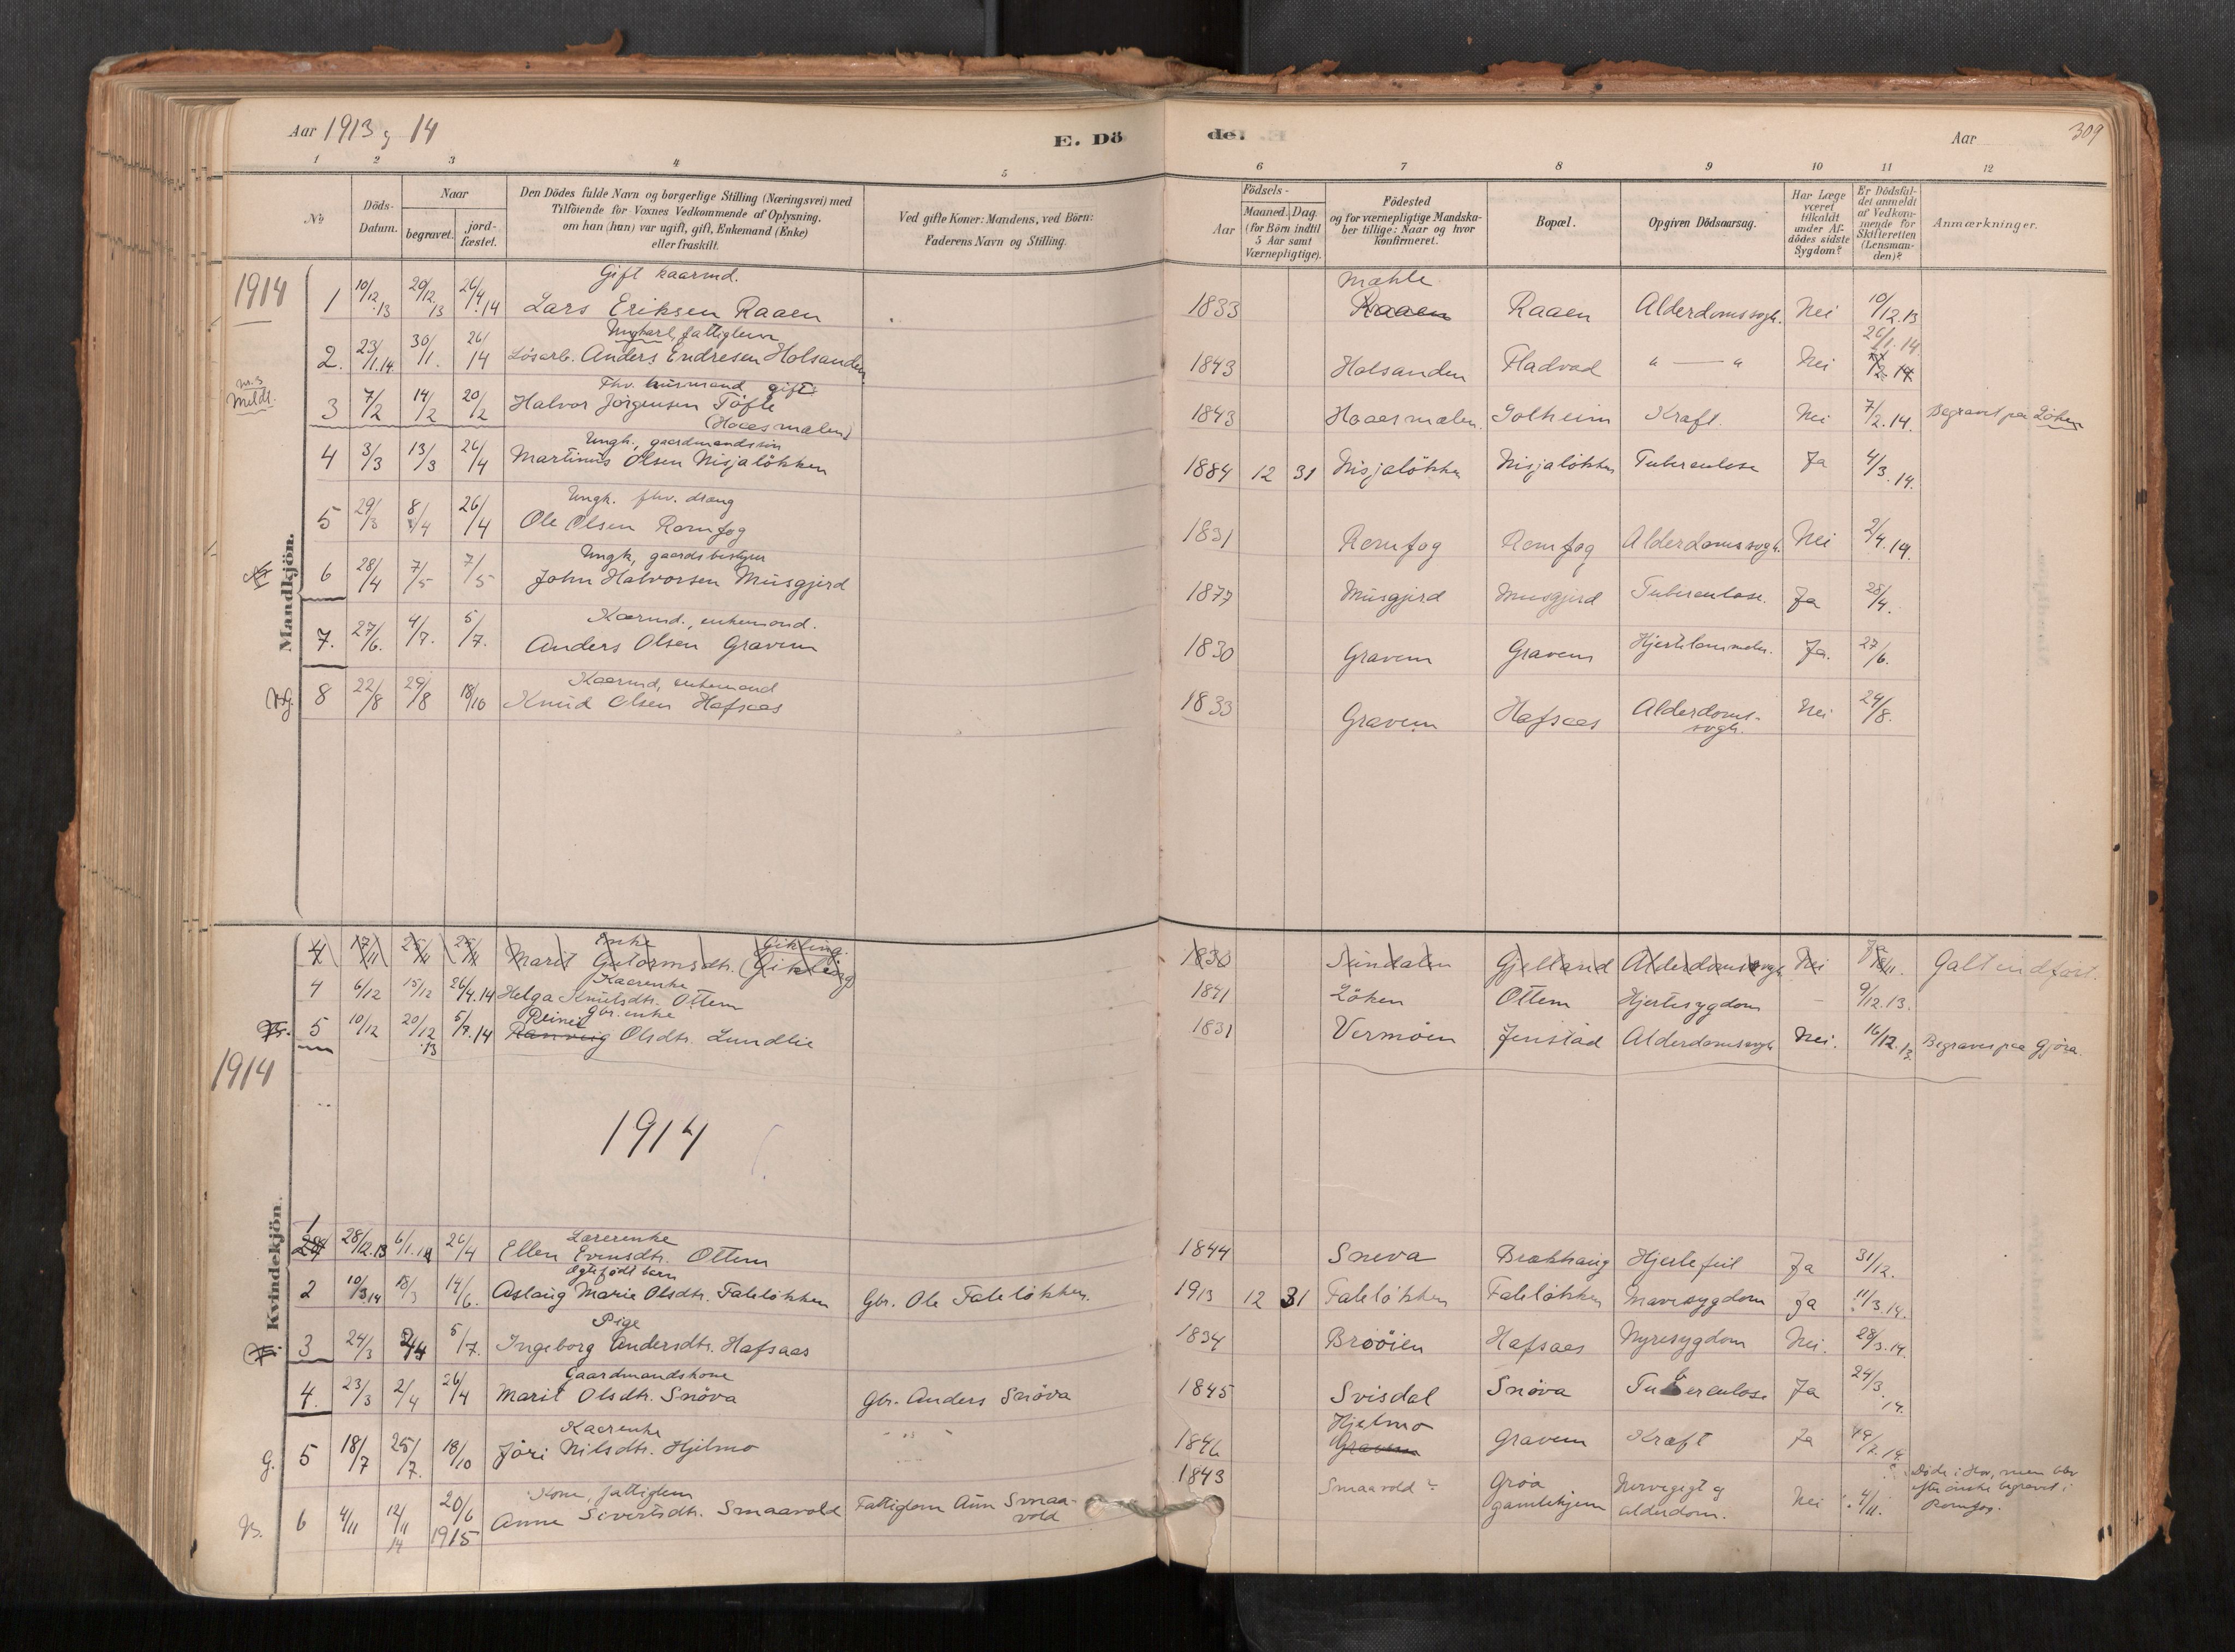 Aar 1913 g 14
E. Döde.
Aar
309
1 2 3 4 5 6 7 8 9 10 11 12
No
Döds-Datum.
Naar
begravet.
jord-fæstet.
Den Dödes fulde Navn og borgerlige Stilling (Næringsvei) med
Tilföiende for Voxnes Vedkommende af Oplysning,
om han (hun) var ugift, gift, Enkemand (Enke)
eller fraskilt.
Ved gifte Koner: Mandens, ved Börn:
Faderens Navn og Stilling.
Födsels-
Aar
Maaned. Dag.
(for Börn indtil
5 Aar samt
Værnepligtige).
Födested
og for værnepligtige Mandska-
ber tillige: Naar og hvor
konfirmeret.
Bopæl.
Opgiven Dödsaarsag.
Har Læge
været
tilkaldt
under Af-
dödes sidste
Sygdom?
Er Dödsfal-
det anmeldt
af Vedkom-
mende for
Skifteretten
(Lensman-
den)?
Anmærkninger.
Mandkjön.
1914
Gift kaarmd. Mæhle
1 10/12.13 20/12 13 26/4.14 Lars Eriksen Raaen 1833 Raaen Raaen Alderdomssvgh. Nei 10/12.13
Ungkarl, fattiglem
2. 23/1.14. 30/1. 26/14 Løsarb. Anders Endresen Holsanden 1843 Holsanden Fladvad " — " Nei 26/1.14.
nr. 3 meldt.
Fhv. husmand gift
3 7/2 14/2 20/2 Halvor Jörgensen Töfte 1843 Hoaasmælen. Solheim Kræft. Nei 7/2.14. Begravet paa Löken
(Hoaasmælen)
Ungk., gaardmandssön
4 3/3 13/3 26/4 Martinus Olsen Nisjalökken 1884 12 31 Nisjalökken Nisjalökken Tuberculose Ja 4/3.14.
Ungk. fhv. dræng
5 29/3 8/4 26/4 Ole Olsen Romfog 1831 Romfog Romfog Alderdomssvgh. Nei 2/4.14.
Ungk, gaardsbestyrer
6 28/4 7/5 7/5 John Halvorsen Musgjerd 1877 Musgjerd Musgjerd Tuberculose. Ja 28/4.
Kaarmd., enkemand.
7. 27/6. 4/7. 5/7. Anders Olsen Gravem 1830 Gravem Gravem Hjertelammelse. Ja. 27/6.
Kaarmd, enkemand
8 22/8 29/8 18/10 Knud Olsen Hafsaas 1833 Gravem Hafsaas Alderdoms-svgh. Nei 24/8.
Kvindekjön.
Enke Gikling
4 17/11 25/11 25/11 Marit Gutormsdtr. (Gikling) 1830 Sundalen Gjelland Alderdomssvgh Nei 18/11. Galt indført.
Kaarenke
4 6/12 15/12 26/4.14 Helga Knutsdtr. Ottem 1841 Löken Ottem Hjertesygdom – 9/12.13.
Gbr. enke
Reinet
5 10/12 20/12 .13 5/7.14 Ranveig Olsdtr. Lundlie 1831 Vermöen Jenstad Alderdomssvgh Nei. 16/12.13. Begravet paa Gjöra.
1914
1914
Lærerenke
1 28/12.13 6/1.14 26/4 Ellen Evensdtr. Ottem 1844 Sneva Brækhaug Hjertefeil Ja 31/12.
Ægtefödt barn
2 10/3.14 18/3 14/6. Aslaug Marie Olsdtr. Falelökken Gbr. Ole Falelökken. 1913 12 31 Falelökken Falelökken Mavesygdom Ja 11/3.14.
Pige
3 24/3 2/4 5/7. Ingeborg Andersdtr. Hafsaas 1834 Brööien Hafsaas Nyresygdom Nei. 28/3.14.
Gaardmandskone
4. 23/3 2/4 26/4 Marit Olsdtr. Snöva Gbr. Anders Snöva 1845 Svisdal Snöva Tuberculose Ja 24/3.14.
Kaarenke Hjelmo
G. 5 18/7 25/7. 18/10 Jöri Nilsdtr. Hjelmo 1846 Gravem Gravem Kræft Ja
Kone, fattiglem 1843
6 4/11 12/11 14 20/6 1915 Anne Sivertsdtr. Smaavold Fattiglem Aun Smaa-vold Smaavold? Gröa gamlehjem Nervegigt og alderdom. Nei 4/11. Döde i Hov, men blev efter önske begravet i Romfog.